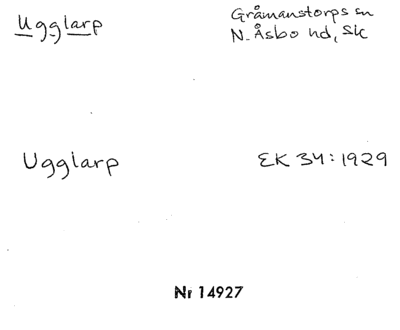 Ugglarp
Gråmanstorps sn
N. Åsbo hd, Sk
Ugglarp
EK 34:1929
Nr 14927